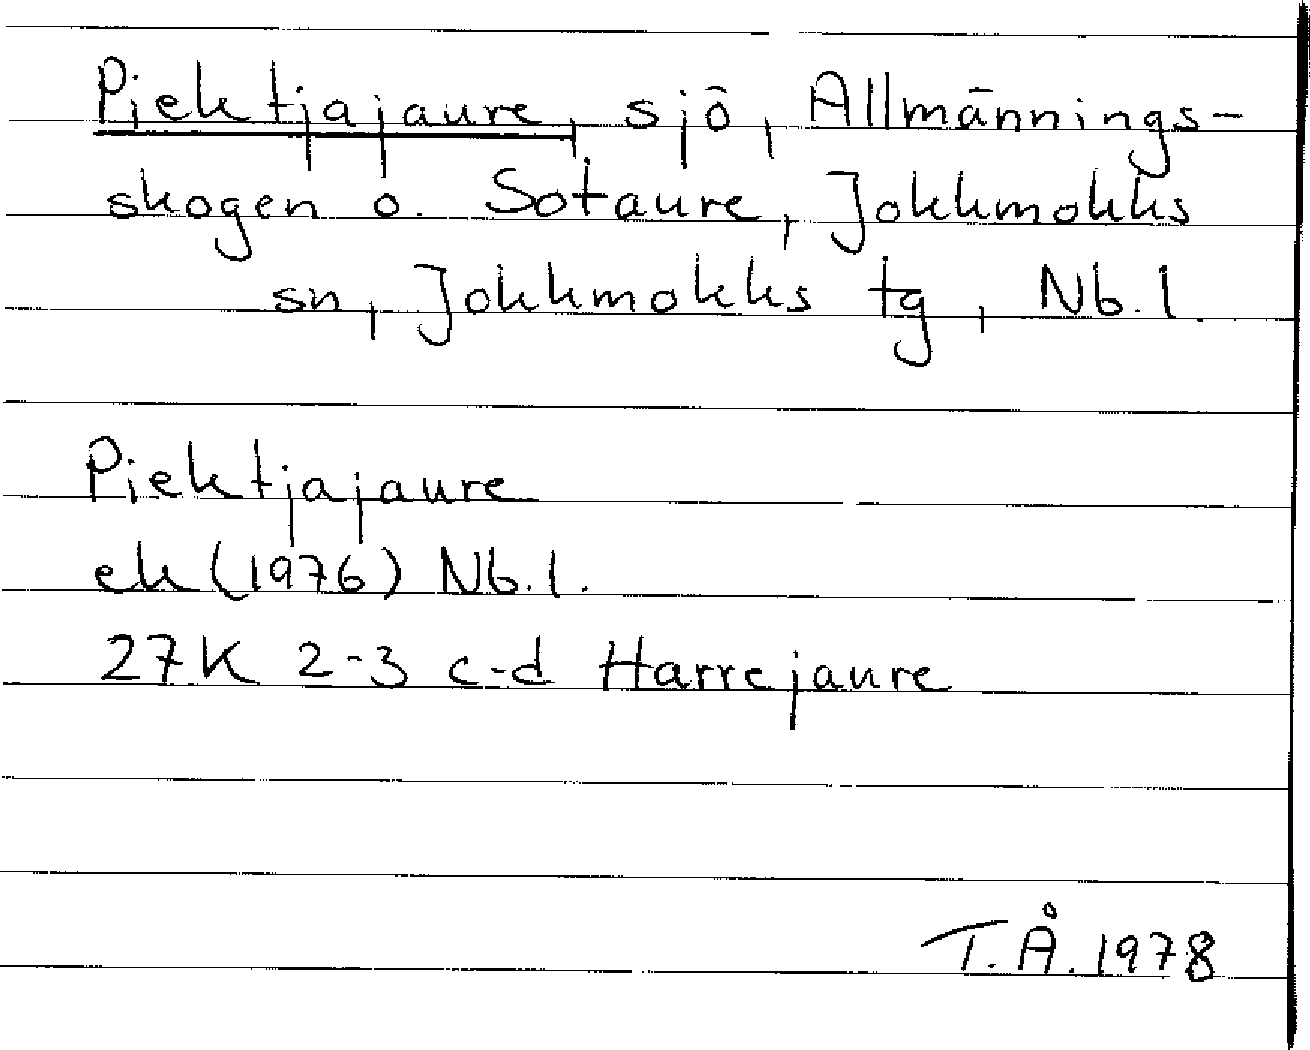 Piektjajaure, sjö, Allmännings-
skogen o. Sotaure, Jokkmokks
sn, Jokkmokks tg, Nb. l
Piektjajaure
ek (1976) Nb. l.
27K 2-3 c-d Harrejaure
T. Å. 1978